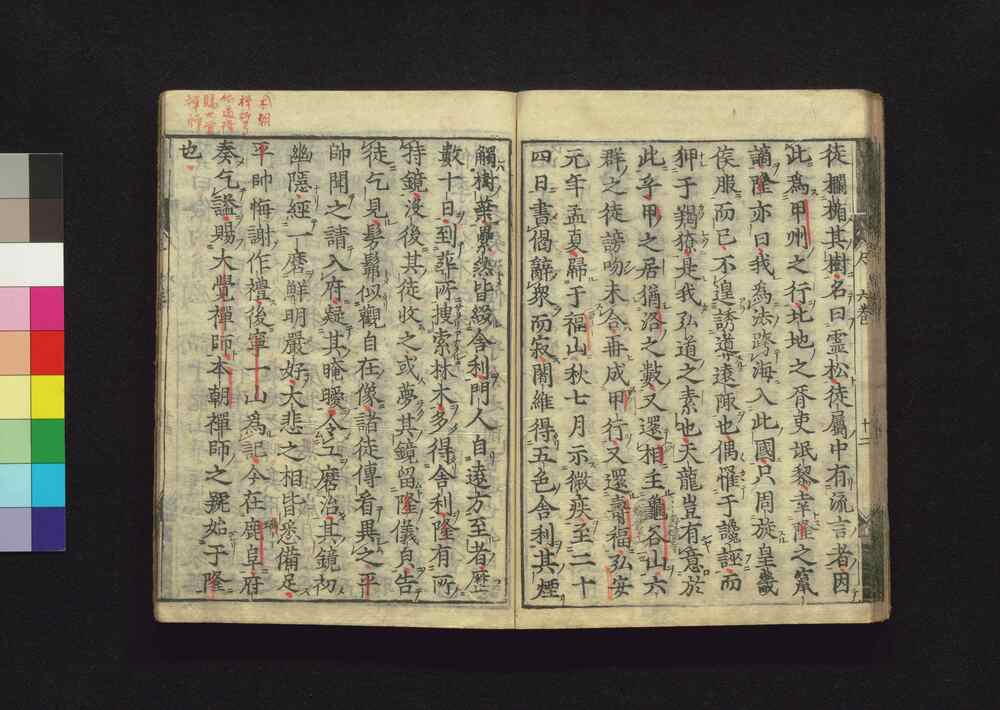 徒欄楯其樹名曰霊松徒屬中有流言者因
此為甲州之行北地之胥吏氓黎幸隆之竄
謫隆亦曰我為法跨海入此國只周旋皇畿
侯服而已不遑誘導遠陬也偶罹于讒誣而
狎于羯獠是我弘道之素也天龍豈有意於
此乎甲之居猶洛之數又還相主龜谷山六
群之徒謗吻未合再成甲行又還壽福弘安
元年孟夏歸于福山秋七月示微疾至二十
四日書偈辭衆而寂闍維得五色舍利其煙
觸樹葉纍然皆綴舍利門人自遠方至者歴
數十日到葬所捜索林木多得舍利隆有所
持鏡没後其徒收之或夢其鏡留隆儀貝告
徒乞見髣髴似觀自在像諸徒傳看異之平
帥聞之請入府疑其晻曖令工磨治其鏡初
幽隱經一磨鮮明嚴好大悲之相皆悉備足
平帥悔謝作禮後寧一山為記今在鹿阜府
奏乞謚賜大覺禪師本朝禪師之號始于隆
也
六巻
十二
本朝